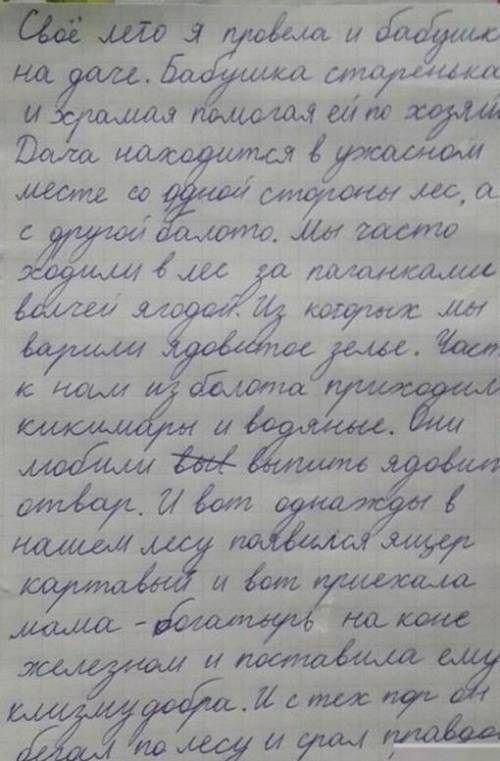 Своё лето я провела и бабушк
на даче. Бабушка старенька
и храмая помогая ей по хозяй
Дача находится в ужасном
месте со одной стороны лес, а
с другой балото. Мы часто
ходили в лес за паганками
волчей ягодой. Из которых мы
варили ядовитое зелье. Част
к нам из болота приходил
кикимары и водяные. Они
любили выпить ядовит
отвар. И вот однажды в
нашем лесу появился ящер
картавый и вот приехала
мама - богатырь на коне
железном и поставила ему
клизму добра. И с тех пор он
бегал по лесу и срал правдо